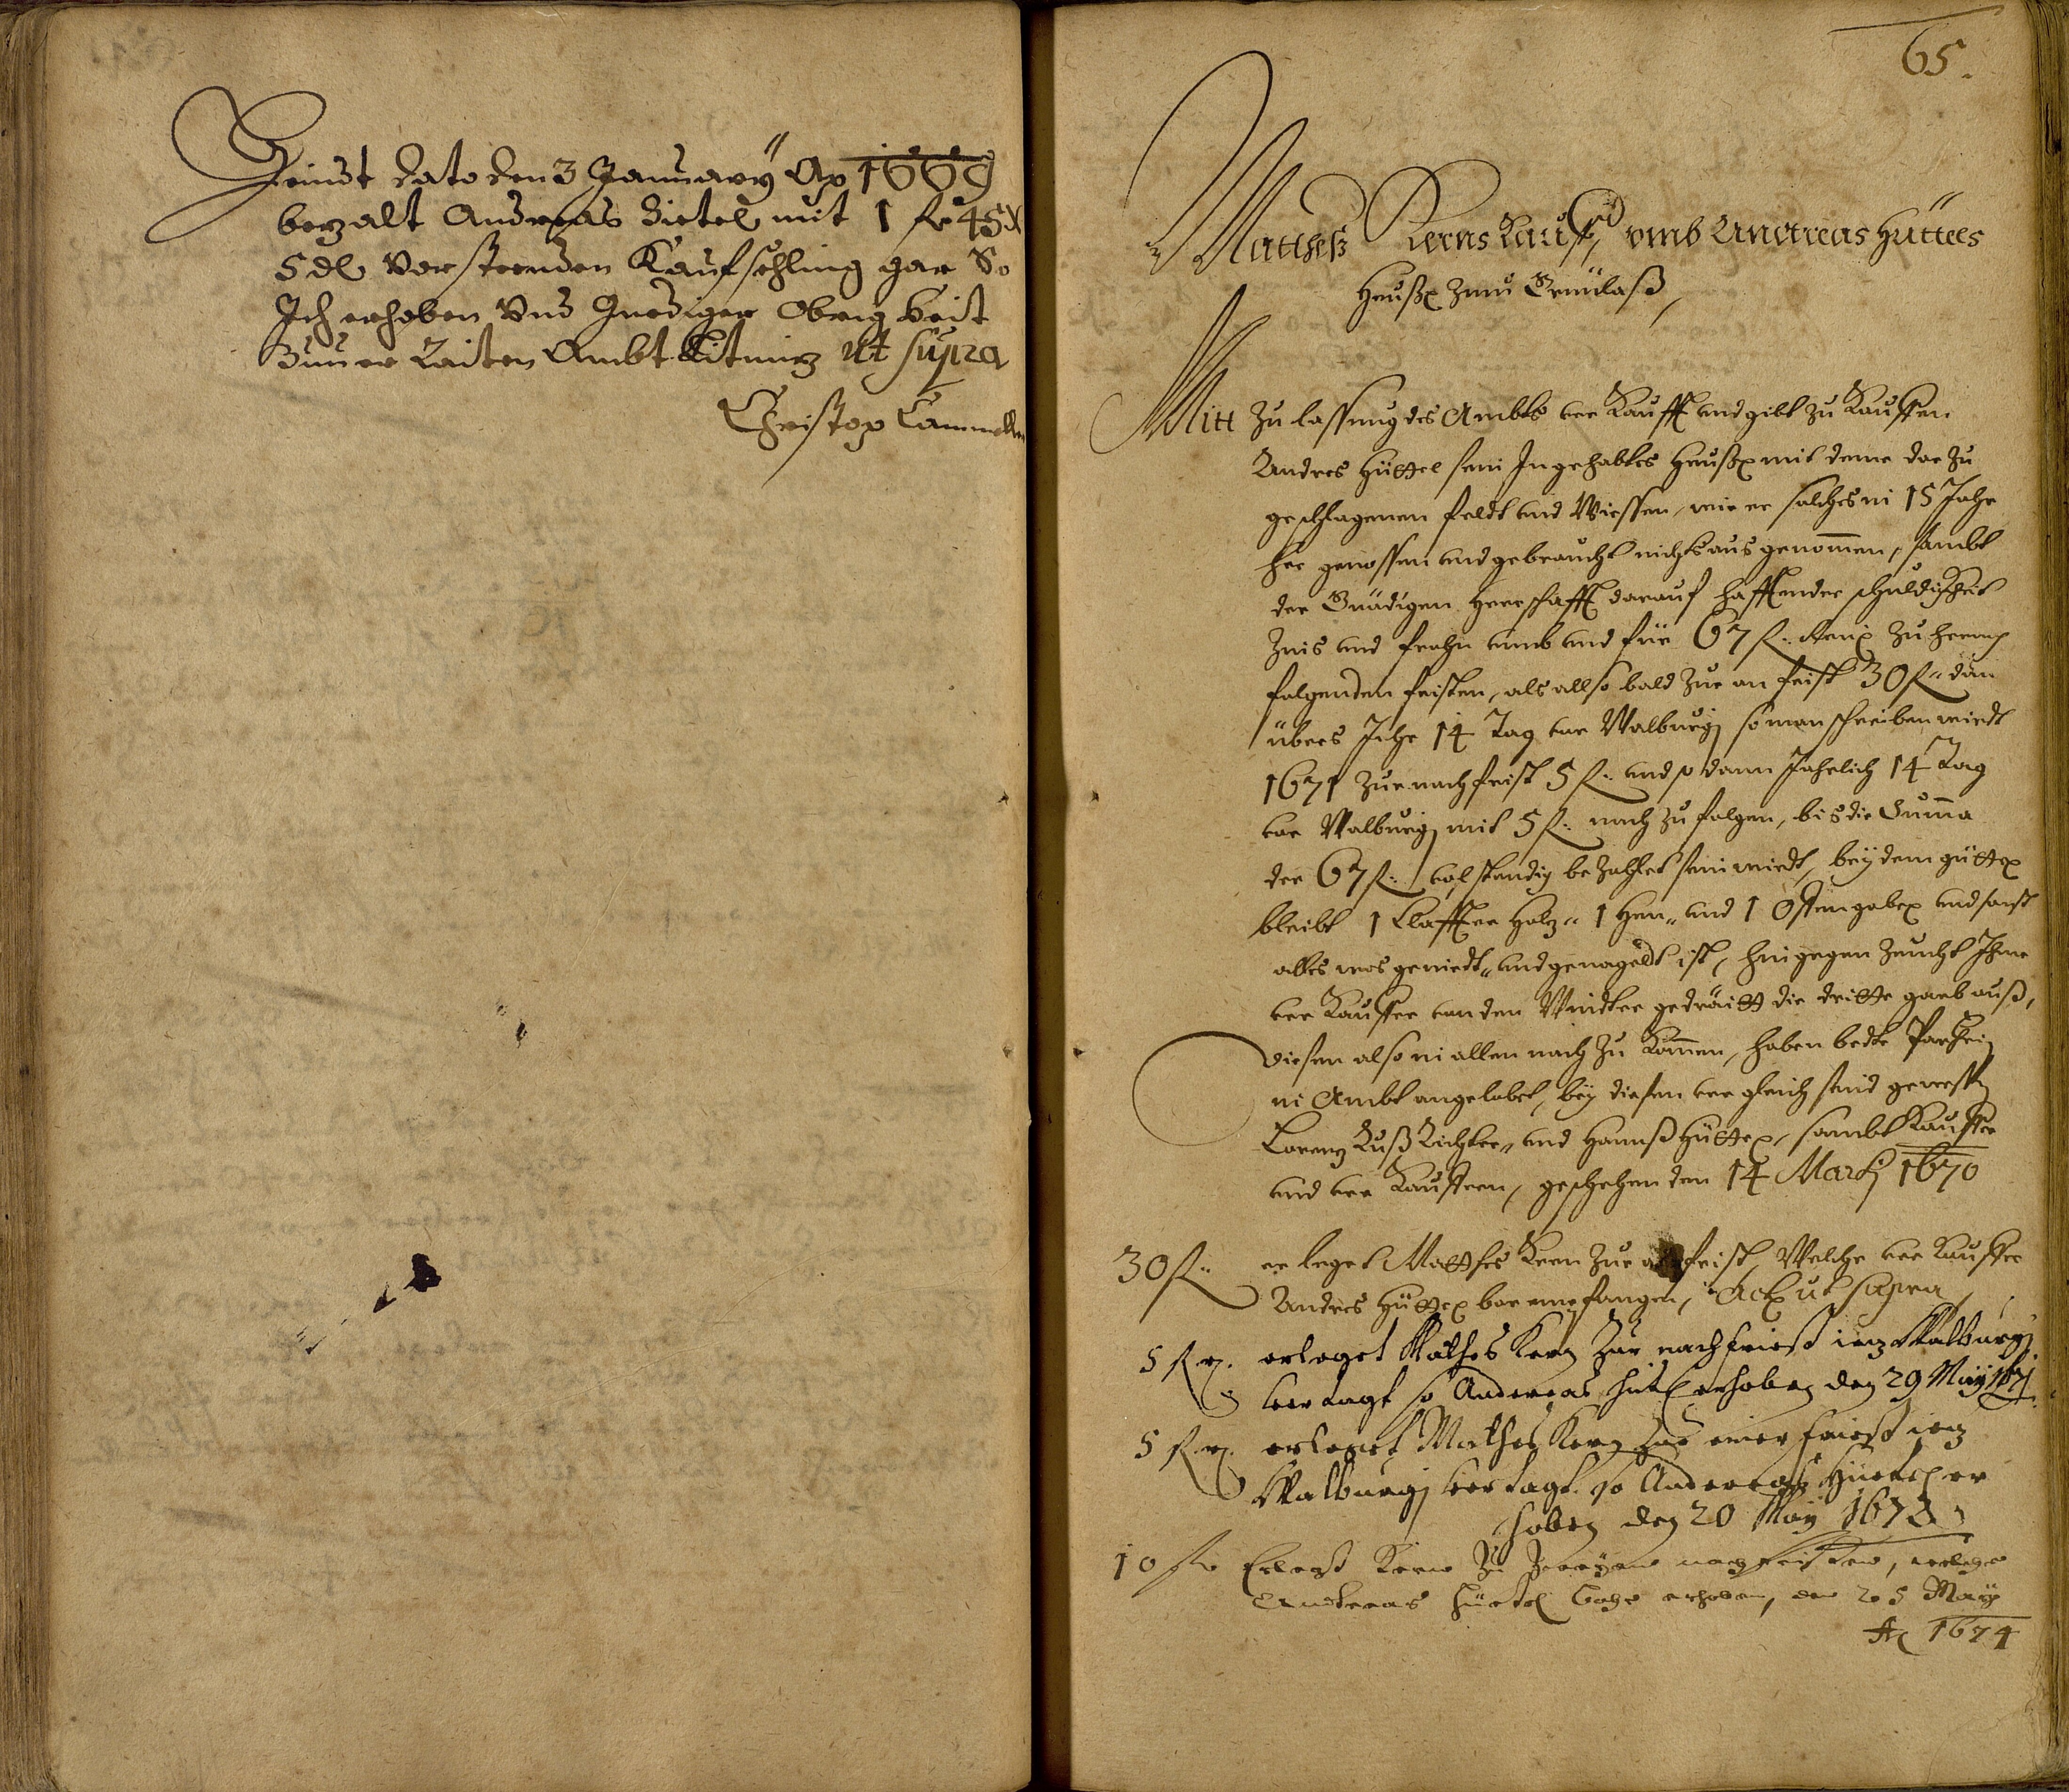 Heindt dato den 3 January Ao 1669
bezalt Andreas Dietel mit 1 fl 45 x
5 dl Vorsteenden Kaufschling gar So
Ich erhoben Und Gnediger Obrigkeit
Zuuer Raiten Ambt ut supra
Christop
65.
Mathes Kerns Kauff vmb Andreas Hüttels
Heußl Zu
Mitt Zulassung des Ambts ver Kaufft vnd gibt zu Kauffen
Andres Hüttel sein Ingehabtes Heußl mit deme dar zu
geschlagenen feldt vnd Wiessen, wie er solches in 15 Jahr
her genossen vnd gebraucht nichts ausgenommen, sambt
der Gnädigen Herrschafft darauf hafftender schuldigkeit
Zins vnd frohn vmb vnd für 67 fl:
folgenden fristen, als allso bald zur an frist 30 fl: dan
übers Jahr 14 Tag vor Walburgj so man schreiben wirdt
1671 zur nachfrist 5 fl: vnd so dann Jahrlich 14 Tag
vor Walburgj mit 5 fl: nach zu folgen, bis die Summa
der 67 fl: volstendig bezahlet sein wirdt, bey dem güttl
bleibt 1 Claffter Holz 1 Heu vnd 1 Ofengabl vnd sonst
alles was geniedt vnd genagelt ist, hingegen zeucht Ihme
ver Kauffer von den Windter getraitt die dritte garb auß,
diesen also in allen nach zu Kommen, haben bede Partheÿ
in Ambt angelobet, beÿ diesen ver gleich seind gewessen
Lorenz Ruß Richter, vnd Hannß Hüttl, sambt Kauffer
vnd ver Kauffern, geschehen den 14 Martj 1670
30 fl: er leget Matthes Kern zur anfrist, Welche ver Kauffer
Andres Hüttl bar empfangen, Act ut supra
5 fl r. erleget Mathes Kern Zur nachfriest Walburgj
vertagt so Andereas Hütl erhoben den 29 Maÿ 1671
5 fl r. erleget Mathes Kern Zur einer friest
Walburgj vertagt. so Andereas Hüetel er
hoben den 20 Maÿ 1672
10 fl Erlegt Kern Zu Zweyen nachfristen, welche
Andreas Hüetel erhoben, den 25 Maÿ
Ao 1674